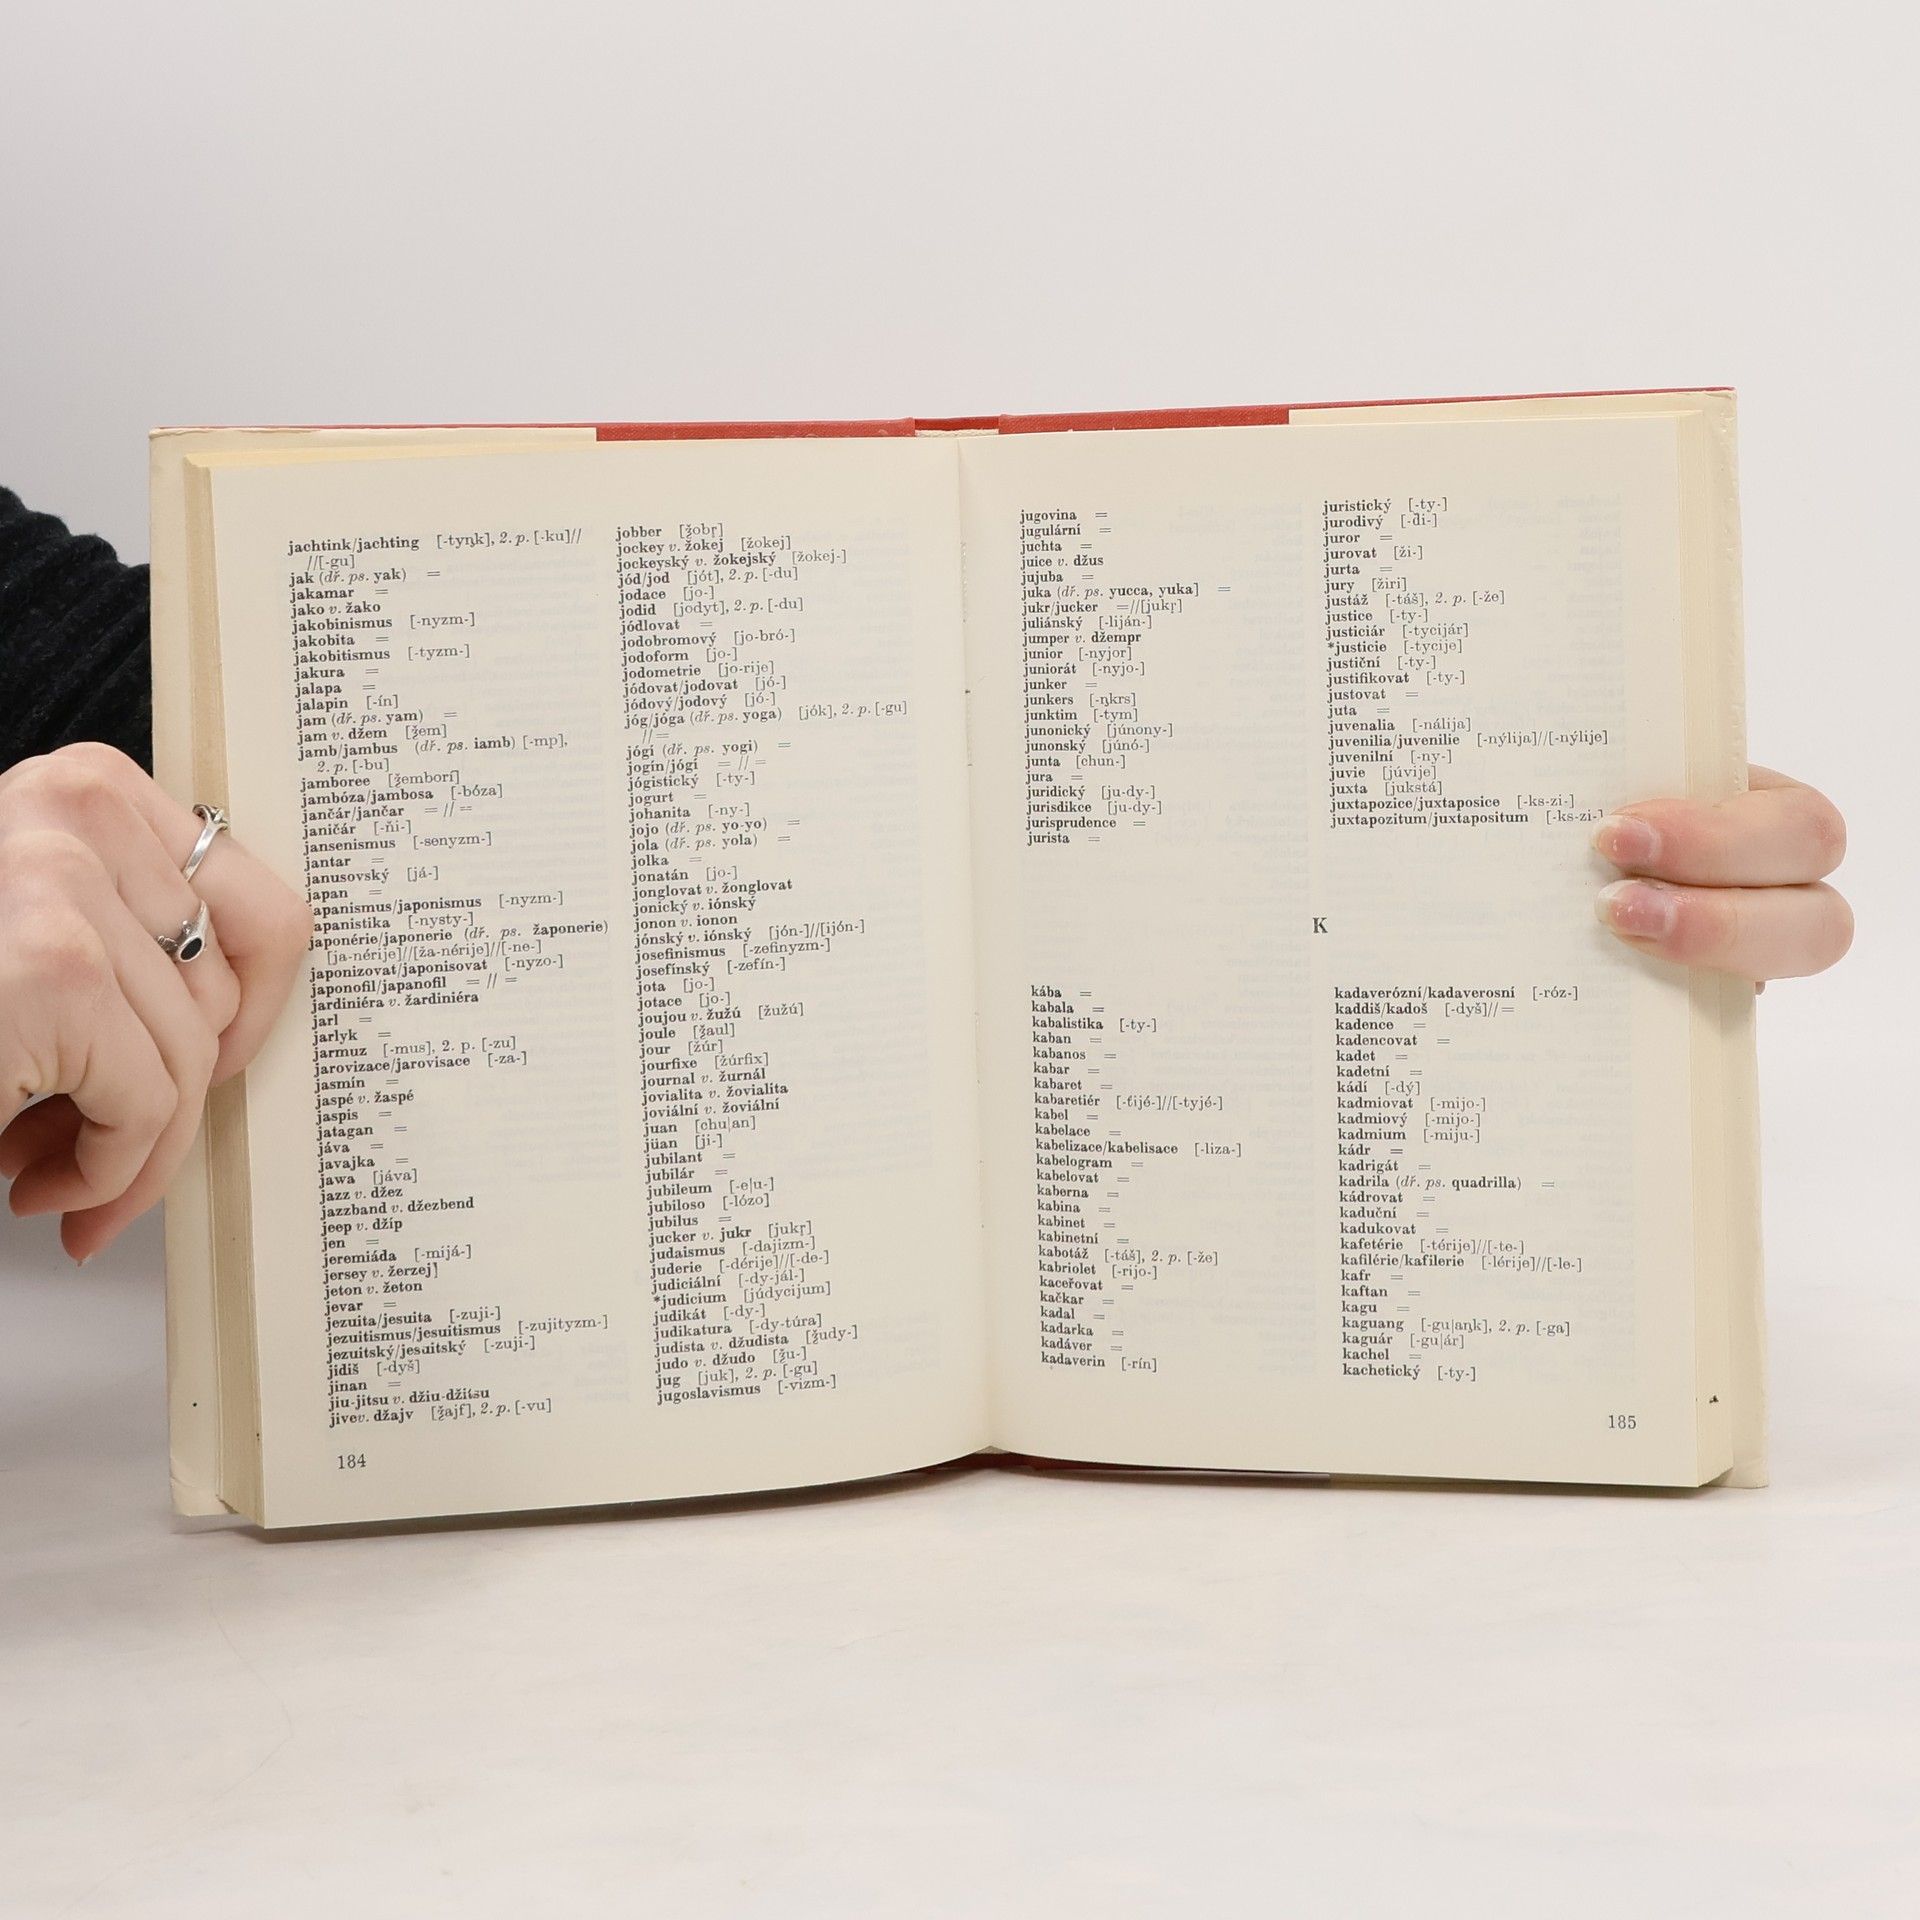 jachtink/jachting [-tyŋk], 2. p. [-ku]//
//[-gu]
jak (dř. ps. yak) =
jakamar =
jako v. žako
jakobinismus [-nyzm-]
jakobita =
jakobitismus [-tyzm-]
jakura =
jalapa =
jalapin [-ín]
jam (dř. ps. yam) =
jam v. džem [ǯem]
jamb/jambus (dř. ps. iamb) [-mp],
2. p. [-bu]
jamboree [ǯemborí]
jambóza/jambosa [-bóza]
jančár/jančar = // =
janičár [-ňi-]
jansenismus [-senyzm-]
jantar =
janusovský [já-]
japan =
japanismus/japonismus [-nyzm-]
japanistika [-nysty-]
japonérie/japonerie (dř. ps. žaponerie)
[ja-nérije]//[ža-nérije]//[-ne-]
japonizovat/japonisovat [-nyzo-]
japonofil/japanofil = // =
jardiniéra v. žardiniéra
jarl =
jarlyk =
jarmuz [-mus], 2. p. [-zu]
jarovizace/jarovisace [-za-]
jasmín =
jaspé v. žaspé
jaspis =
jatagan =
jáva =
javajka =
jawa [jáva]
jazz v. džez
jazzband v. džezbend
jeep v. džíp
jen =
jeremiáda [-mijá-]
jersey v. žerzej]
jeton v. žeton
jevar =
jezuita/jesuita [-zuji-]
jezuitismus/jesuitismus [-zujityzm-]
jezuitský/jesuitský [-zuji-]
jidiš [-dyš]
jinan =
jiu-jitsu v. džiu-džitsu
jivev. džajv [ǯajf], 2. p. [-vu]
184
jobber [ǯobr̥]
jockey v. žokej [žokej]
jockeyský v. žokejský [žokej-]
jód/jod [jót], 2. p. [-du]
jodace [jo-]
jodid [jodyt], 2. p. [-du]
jódlovat =
jodobromový [jo-bró-]
jodoform [jo-]
jodometrie [jo-rije]
jódovat/jodovat [jó-]
jódový/jodový [jó-]
jóg/jóga (dř. ps. yoga) [jók], 2. p. [-gu]
// =
jógí (dř. ps. yogi) =
jogín/jógí = // =
jógistický [-ty-]
jogurt =
johanita [-ny-]
jojo (dř. ps. yo-yo) =
jola (dř. ps. yola) =
jolka =
jonatán [jo-]
jonglovat v. žonglovat
jonický v. iónský
jonon v. ionon
jónský v. iónský [jón-]//[ijón-]
josefinismus [-zefinyzm-]
josefínský [-zefín-]
jota [jo-]
jotace [jo-]
joujou v. žužú [žužú]
joule [ǯaul]
jour [žúr]
jourfixe [žúrfix]
journal v. žurnál
jovialita v. žovialita
joviální v. žoviální
juan [chu|an]
jüan [ji-]
jubilant =
jubilár =
jubileum [-e|u-]
jubiloso [-lózo]
jubilus =
jucker v. jukr [jukr̥]
judaismus [-dajizm-]
juderie [-dérije]//[-de-]
judiciální [-dy-jál-]
*judicium [júdycijum]
judikát [-dy-]
judikatura [-dy-túra]
judista v. džudista [ǯudy-]
judo v. džudo [ǯu-]
jug [juk], 2. p. [-gu]
jugoslavismus [-vizm-]
jugovina =
jugulární =
juchta =
juice v. džus
jujuba =
juka (dř. ps. yucca, yuka) =
jukr/jucker =//[jukr̥]
juliánský [-liján-]
jumper v. džempr
junior [-nyjor]
juniorát [-nyjo-]
junker =
junkers [-ŋkrs]
junktim [-tym]
junonický [júnony-]
junonský [júnó-]
junta [chun-]
jura =
juridický [ju-dy-]
jurisdikce [ju-dy-]
jurisprudence =
jurista =
juristický [-ty-]
jurodivý [-ďi-]
juror =
jurovat [ži-]
jurta =
jury [žiri]
justáž [-táš], 2. p. [-že]
justice [-ty-]
justiciár [-tycijár]
*justicie [-tycije]
justiční [-ty-]
justifikovat [-ty-]
justovat =
juta =
juvenalia [-nálija]
juvenilia/juvenilie [-nýlija]//[-nýlije]
juvenilní [-ny-]
juvie [júvije]
juxta [jukstá]
juxtapozice/juxtaposice [-ks-zi-]
juxtapozitum/juxtapositum [-ks-zi-]
K
kába =
kabala =
kabalistika [-ty-]
kaban =
kabanos =
kabar =
kabaret =
kabaretiér [-ťijé-]//[-tyjé-]
kabel =
kabelace =
kabelizace/kabelisace [-liza-]
kabelogram =
kabelovat =
kaberna =
kabina =
kabinet =
kabinetní =
kabotáž [-táš], 2. p. [-že]
kabriolet [-rijo-]
kaceřovat =
kačkar =
kadal =
kadarka =
kadáver =
kadaverin [-rín]
kadaverózní/kadaverosní [-róz-]
kaddiš/kadoš [-dyš]//=
kadence =
kadencovat =
kadet =
kadetní =
kádí [-dý]
kadmiovat [-mijo-]
kadmiový [-mijo-]
kadmium [-miju-]
kádr =
kadrigát =
kadrila (dř. ps. quadrilla) =
kádrovat =
kaduční =
kadukovat =
kafetérie [-térije]//[-te-]
kafilérie/kafilerie [-lérije]//[-le-]
kafr =
kaftan =
kagu =
kaguang [-gu|aŋk], 2. p. [-ga]
kaguár [-gu|ár]
kachel =
kachetický [-ty-]
185